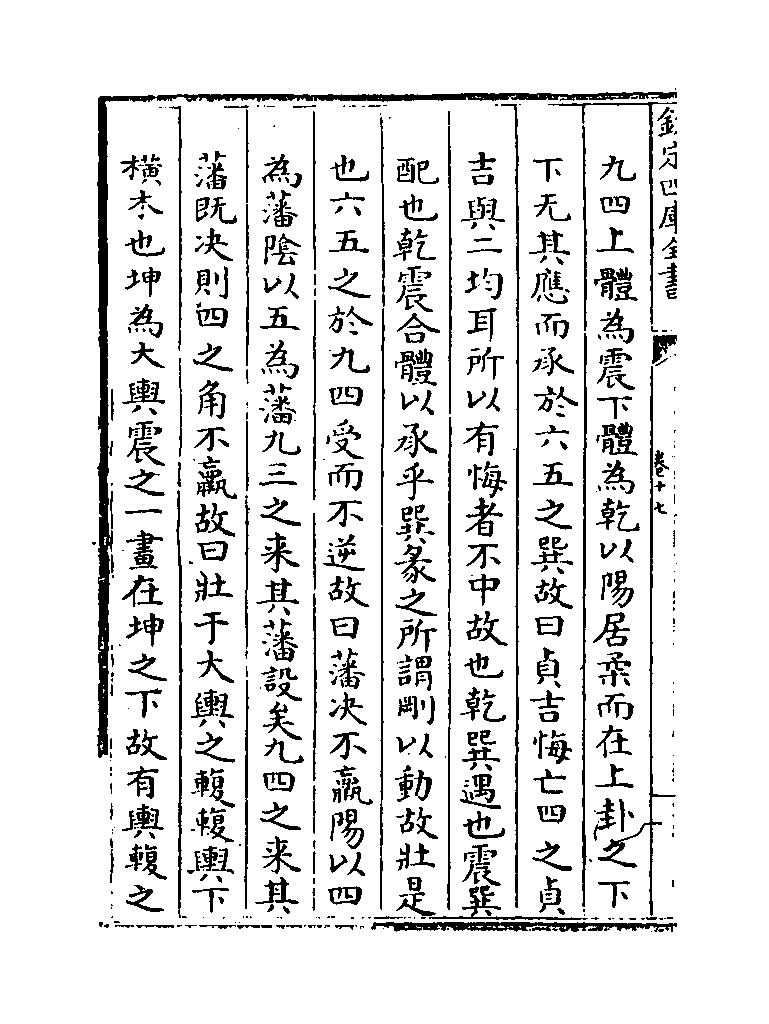 欽定四庫全書
卷十七
九四上體為震下體為乾以陽居柔而在上卦之下
下无其應而承於六五之巽故曰貞吉悔亡四之貞
吉與二均耳所以有悔者不中故也乾巽遇也震巽
配也乾震合體以承乎巽彖之所謂剛以動故壯是
也六五之於九四受而不逆故曰藩决不羸陽以四
為藩隂以五為藩九三之来其藩設矣九四之来其
藩既决則四之角不羸故曰壯于大輿之輹輹輿下
横木也坤為大輿震之一畫在坤之下故有輿輹之